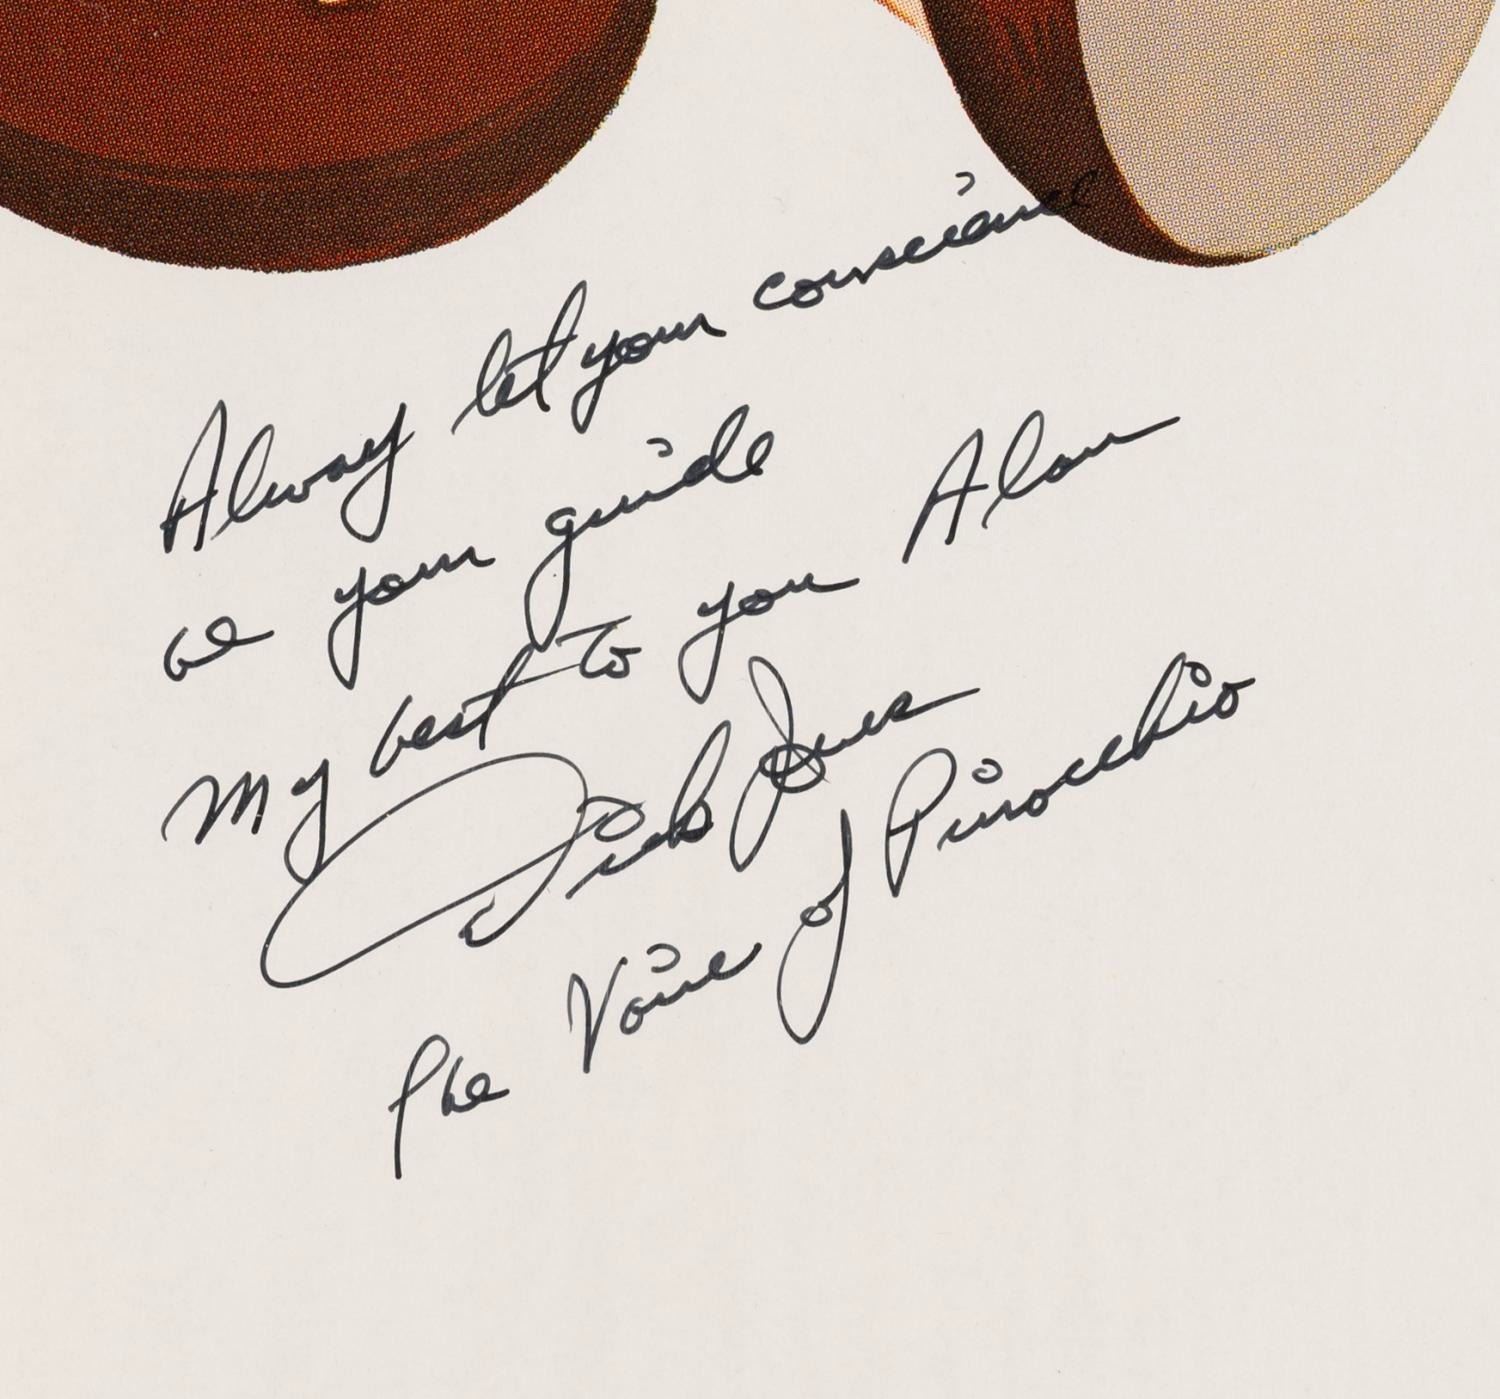 Alway let your conscience
be your guide
My best to you Alan
Dick Jones
The Voice of Pinocchio